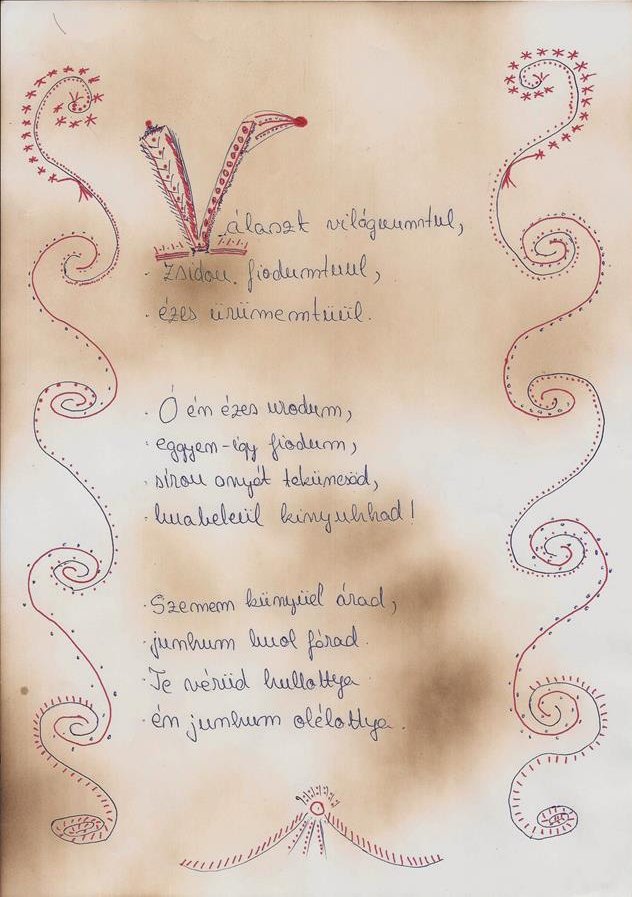 Választ világuumtul,
Zsidou fiodumtuul,
ézes ürümemtüül.
Ó én ézes urodum,
eggyen-igy fiodum,
sírou anyát teküncsöd,
buabeleül kinyuhhad!
Szemem künyüel árad,
junhum buol fárad.
Te vérüd hullottya
én junhum olélottya.